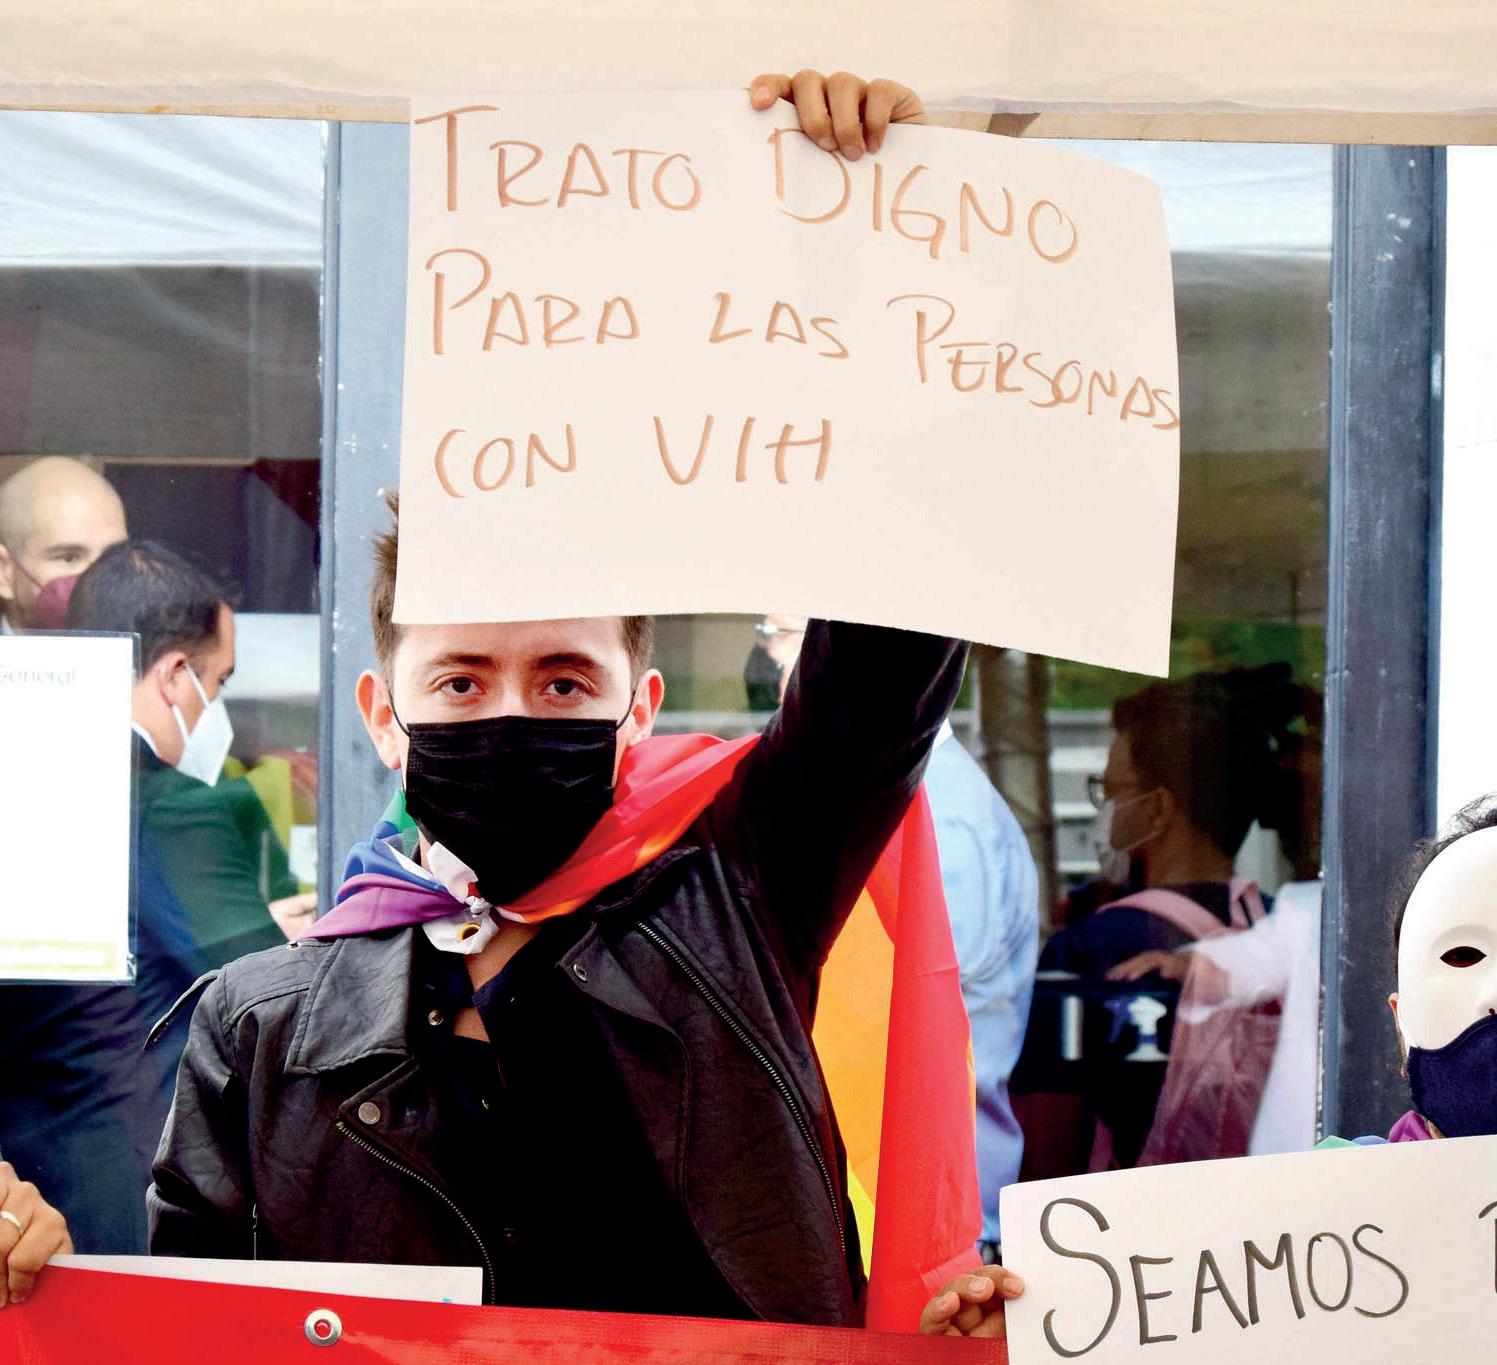 TRATO DIGNO
PARA LAS PERSONAS
CON VIH
General
SEAMOS